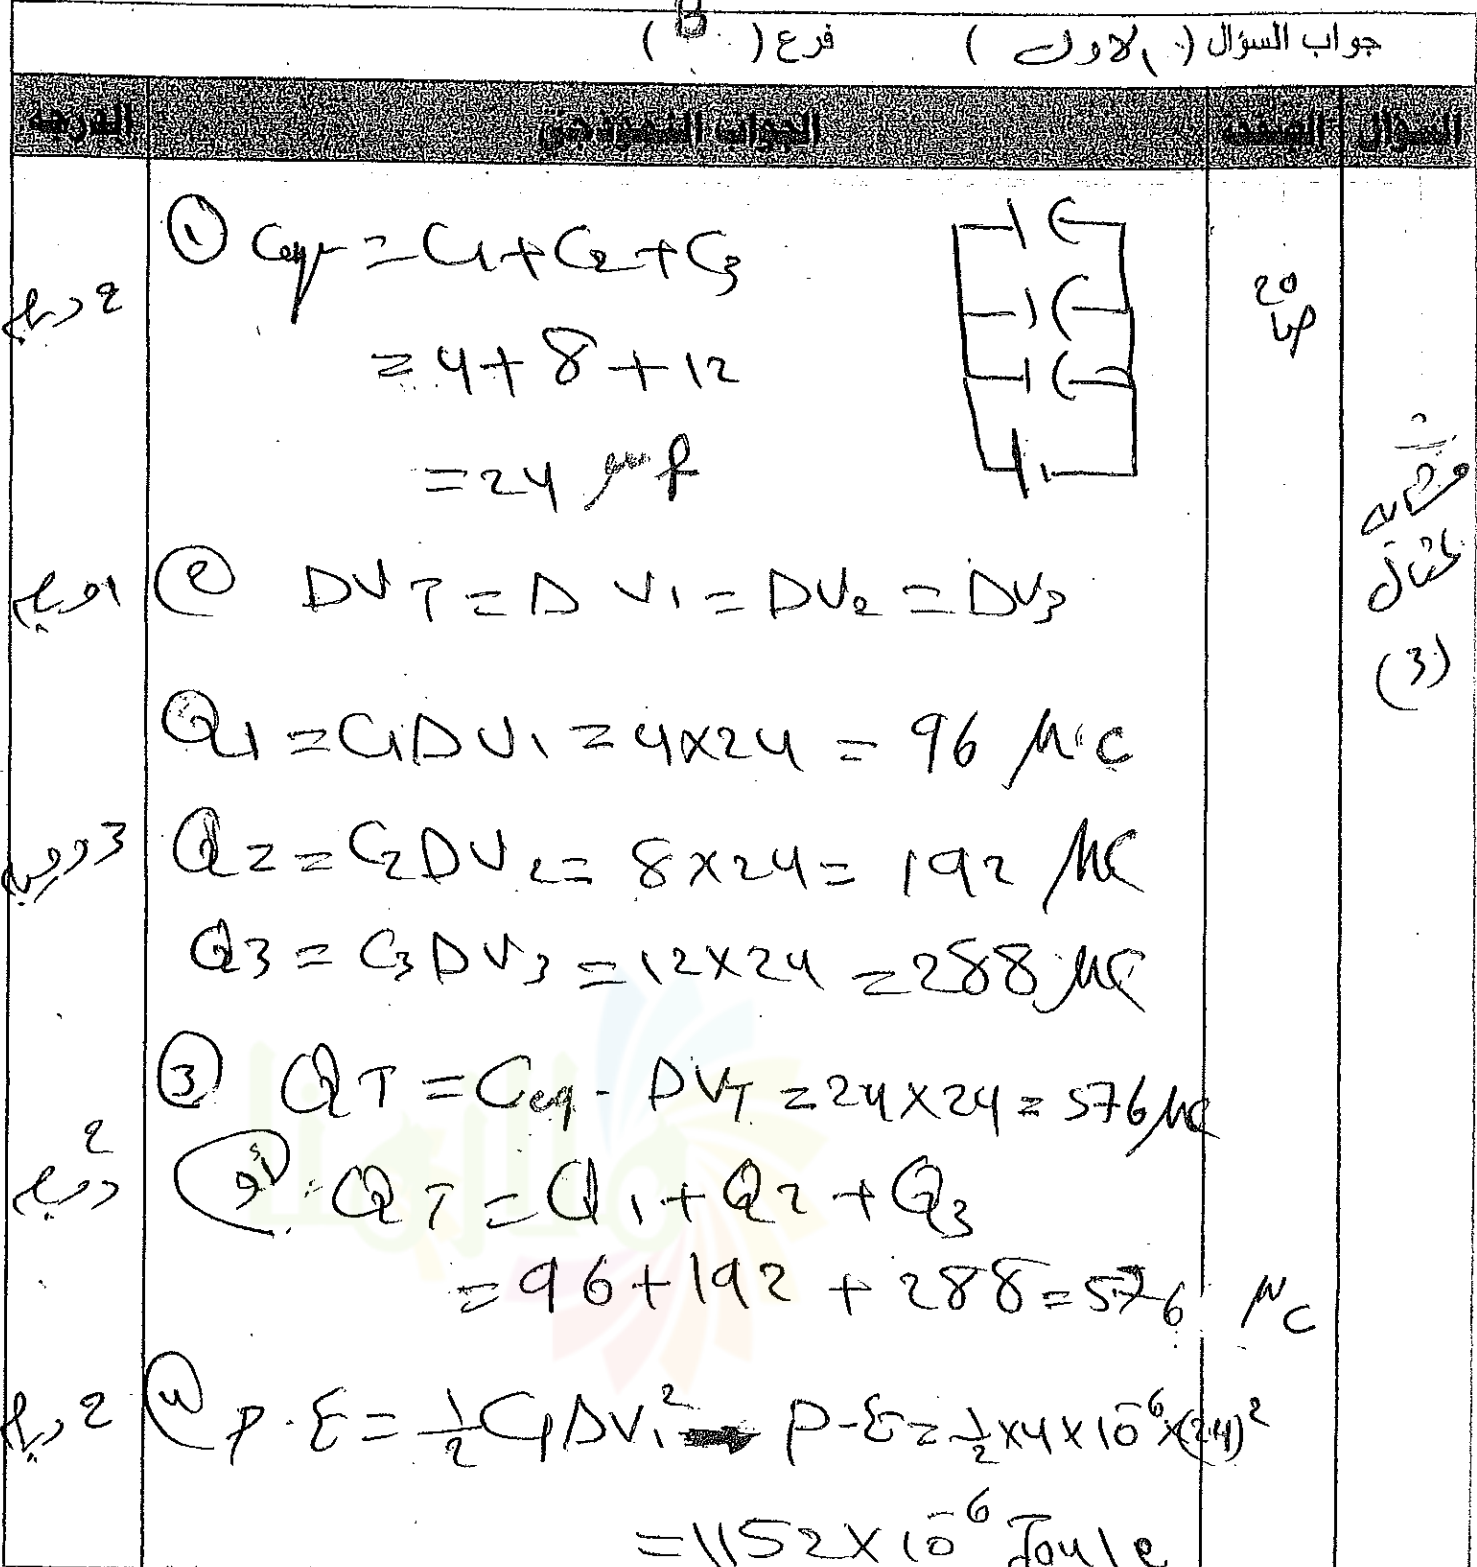 جواب السؤال ( الاول ) فرع ( B )
السؤال الصفحة الجواب النموذجي الدرجة
① Ceq = C1 + C2 + C3
= 4 + 8 + 12
= 24 μf
② DVT = D V1 = DV2 = DV3
Q1 = C1DV1 = 4x24 = 96 μC
Q2 = C2DV2 = 8x24 = 192 μC
Q3 = C3DV3 = 12x24 = 288 μC
③ QT = Ceq . DVT = 24x24 = 576 μC
أو QT = Q1 + Q2 + Q3
= 96 + 192 + 288 = 576 μC
④ P.E = 1/2 C1DV1² P-E = 1/2 x4x10⁻⁶x(24)²
= 1152 x 10⁻⁶ Joule
20
2
3
2
2
(3)